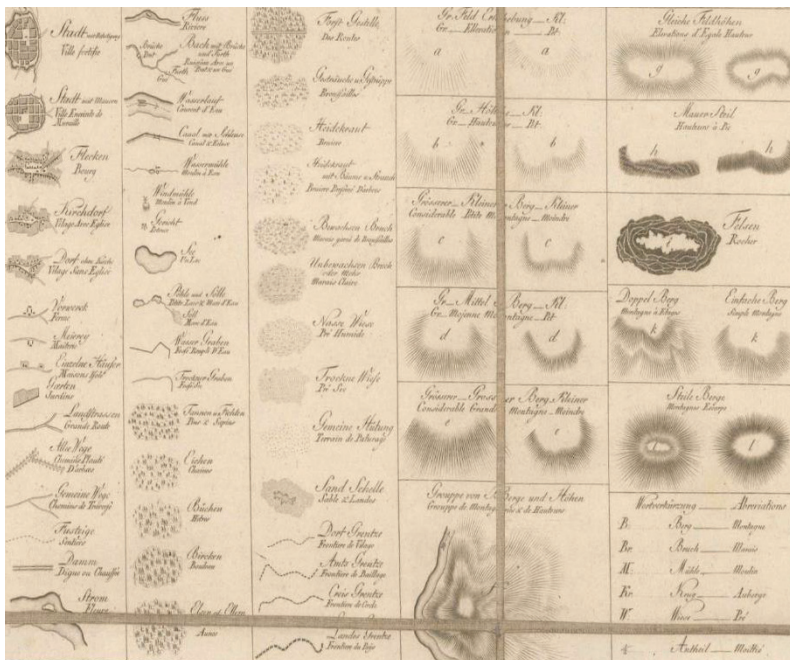 Stadt mit Befestigung
Ville fortifié
Stadt mit Mauern
Ville Enceinte de
Muraille
Flecken
Bourg
Kirchdorf
Village Avec Eglise
Dorf ohne Kirche
Village Sans Eglise
Vorwerck
Ferme
Meierey
Einzelne Häuser
Maisons
Garten
Jardins
Landstrassen
Grande Route
Allee Wege
Chemin Planté
D'arbres
Gemeine Wege
Chemins de Traverse
Fussteige
Sentiers
Damm
Digue ou Chaussée
Strom
Fleuve
Fluss
Rivière
Bach mit Brücke
und Furth
Ruisseau Avec un
Pont & un Gué
Brücke
Pont
Furth
Gué
Wasserlauf
Courant d'Eau
Canal mit Schleuse
Canal & Ecluse
Wassermühle
Moulin à Eau
Windmühle
Moulin à Vent
Gericht
See
Un Lac
Pöhle und Sölle
Söll
Mare d'Eau
Wasser Graben
Fossé Rempli D'Eau
Trockner Graben
Tannen u Fichten
Pins & Sapins
Eichen
Chaines
Büchen
Hetre
Bircken
Bouleau
Elsen et Ellern
Aunes
Forst Gestelle
Des Routes
Gesträuche u Gestrüppe
Brossailles
Heidekraut
Bruiere
Heidekraut
mit Bäume u Strauch
Bewachsen Bruch
Marais garni de Brossailles
Unbewachsen Bruch
oder Mohr
Marais Claire
Nasse Wiese
Pré Humide
Trockne Wiese
Pré Sec
Gemeine Hütung
Terrain de Paturage
Sand Schelle
Sable & Landes
Dorf Grentze
Frontière de Village
Amts Grentze
Frontière de Baillage
Creis Grentze
Frontière de Cercle
Landes Grentze
Frontière du Païs
Gr. Feld Erhebung Kl.
Gr. Elevation Pt.
a a
Gr. Höhe Kl.
Gr. Hauteur Pt.
b b
Grösserer Kleiner Berg Kleiner
Considerable Petite Montagne Moindre
c c
Gr. Mittel Berg Kl.
Gr. Mojenne Montagne Pt.
d d
Grösserer Grosser Berg Kleiner
Considerable Grande Montagne Moindre
e e
Grouppe von Berge und Höhen
Grouppe de Montagnes & de Hauteurs
Gleiche Feldhöhen
Elevations d'Egale Hauteur
g g
Mauer Steil
Hauteurs à Pic
h h
Felsen
Rocher
i
Doppel Berg
Montagne à Etages
Einfache Berg
Simple Montagne
k k
Steile Berge
Montagnes Escarpés
l l
Wortverkürzung Abreviations
B. Berg Montagne
Br. Bruch Marais
M. Mühle Moulin
Kr. Krug Auberge
W. Wiese Pré
Antheil Moitié